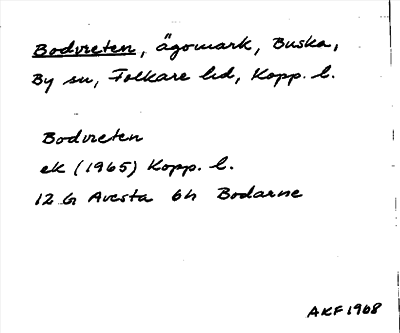 Bodvreten, ägomark, Buska,
By sn, Folkare hd, Kopp. l.
Bodvreten
ek (1965) Kopp. l.
12 G Avesta 6h Bodarne
AKF 1968